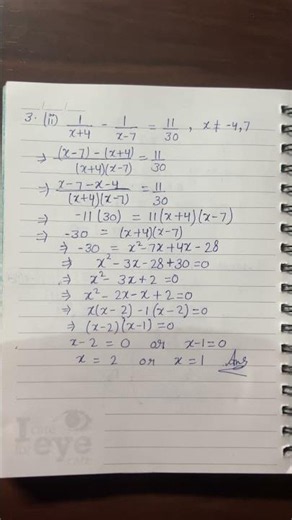 3. (ii) 1/(x+4) - 1/(x-7) = 11/30 , x ≠ -4,7
⇒ ((x-7) - (x+4))/((x+4)(x-7)) = 11/30
⇒ (x-7-x-4)/((x+4)(x-7)) = 11/30
⇒ -11(30) = 11(x+4)(x-7)
⇒ -30 = (x+4)(x-7)
⇒ -30 = x²-7x+4x-28
⇒ x²-3x-28+30=0
⇒ x²-3x+2=0
⇒ x²-2x-x+2=0
⇒ x(x-2)-1(x-2)=0
⇒ (x-2)(x-1)=0
x-2=0 or x-1=0
x = 2 or x=1 Ans
I care
for eye
care